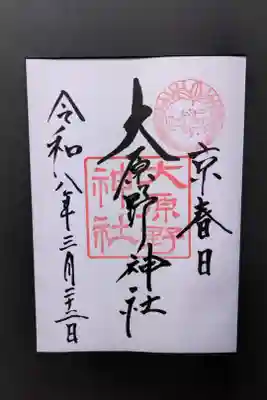 京春日
大原野神社
大原野
神社
令和八年三月二十二日